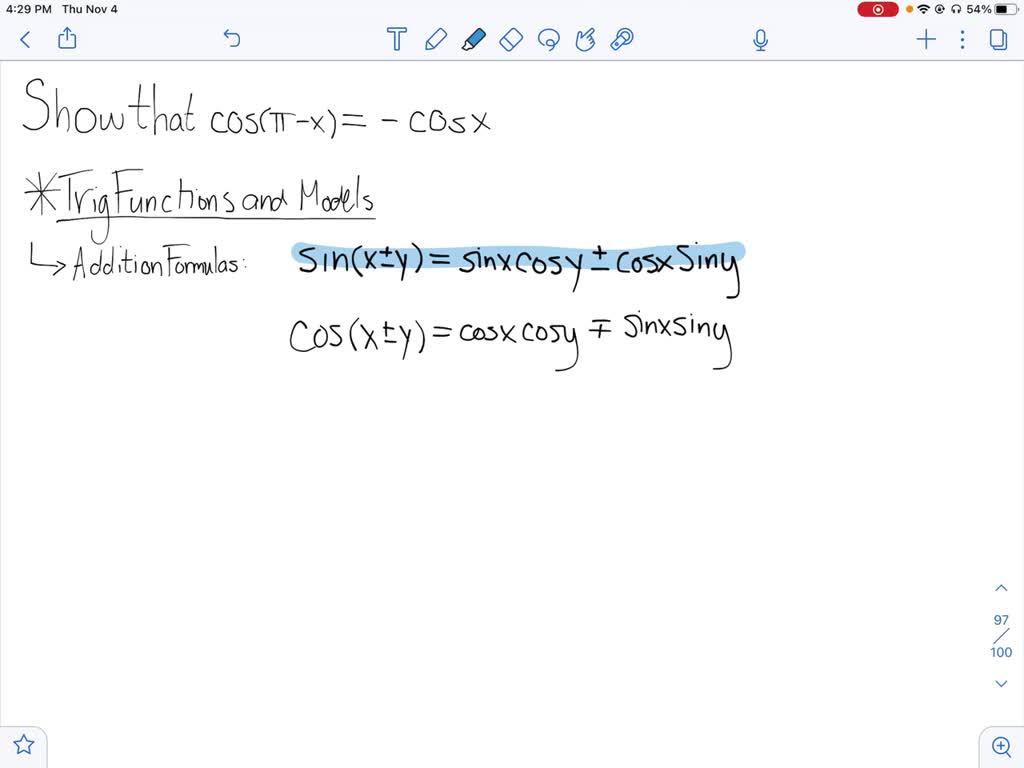 4:29 PM Thu Nov 4 54%
T
Show that cos(π-x) = - cosx
*Trig Functions and Models
↳ Addition Formulas: sin(x±y) = sinxcosy ± cosxsiny
cos(x±y) = cosxcosy ∓ sinxsiny
97
/
100